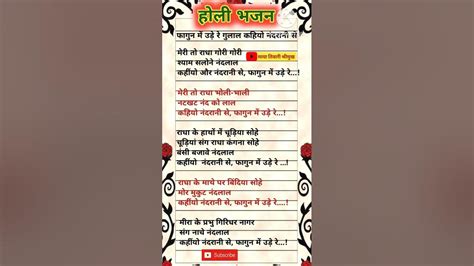 होली भजन
फागुन में उड़े रे गुलाल कहियो नंदरानी से
मेरी तो राधा गोरी गोरी
श्याम सलोने नंदलाल
कहींयो और नंदरानी से, फागुन में उड़े रे...!
मेरी तो राधा भोली-भाली
नटखट नंद को लाल
कहियो नंदरानी से, फागुन में उड़े रे...!
राधा के हाथों में चूड़िया सोहे
चूड़ियां संग राधा कंगना सोहे
बंसी बजावे नंदलाल
कहींयो नंदरानी से, फागुन में उड़े रे ...!
राधा के माथे पर बिंदिया सोहे
मोर मुकुट नंदलाल
कहींयो नंदरानी से, फागुन में उड़े रे...!
मीरा के प्रभु गिरिधर नागर
संग नाचे नंदलाल
कहींयो नंदरानी से, फागुन में उड़े रे...!
Subscribe